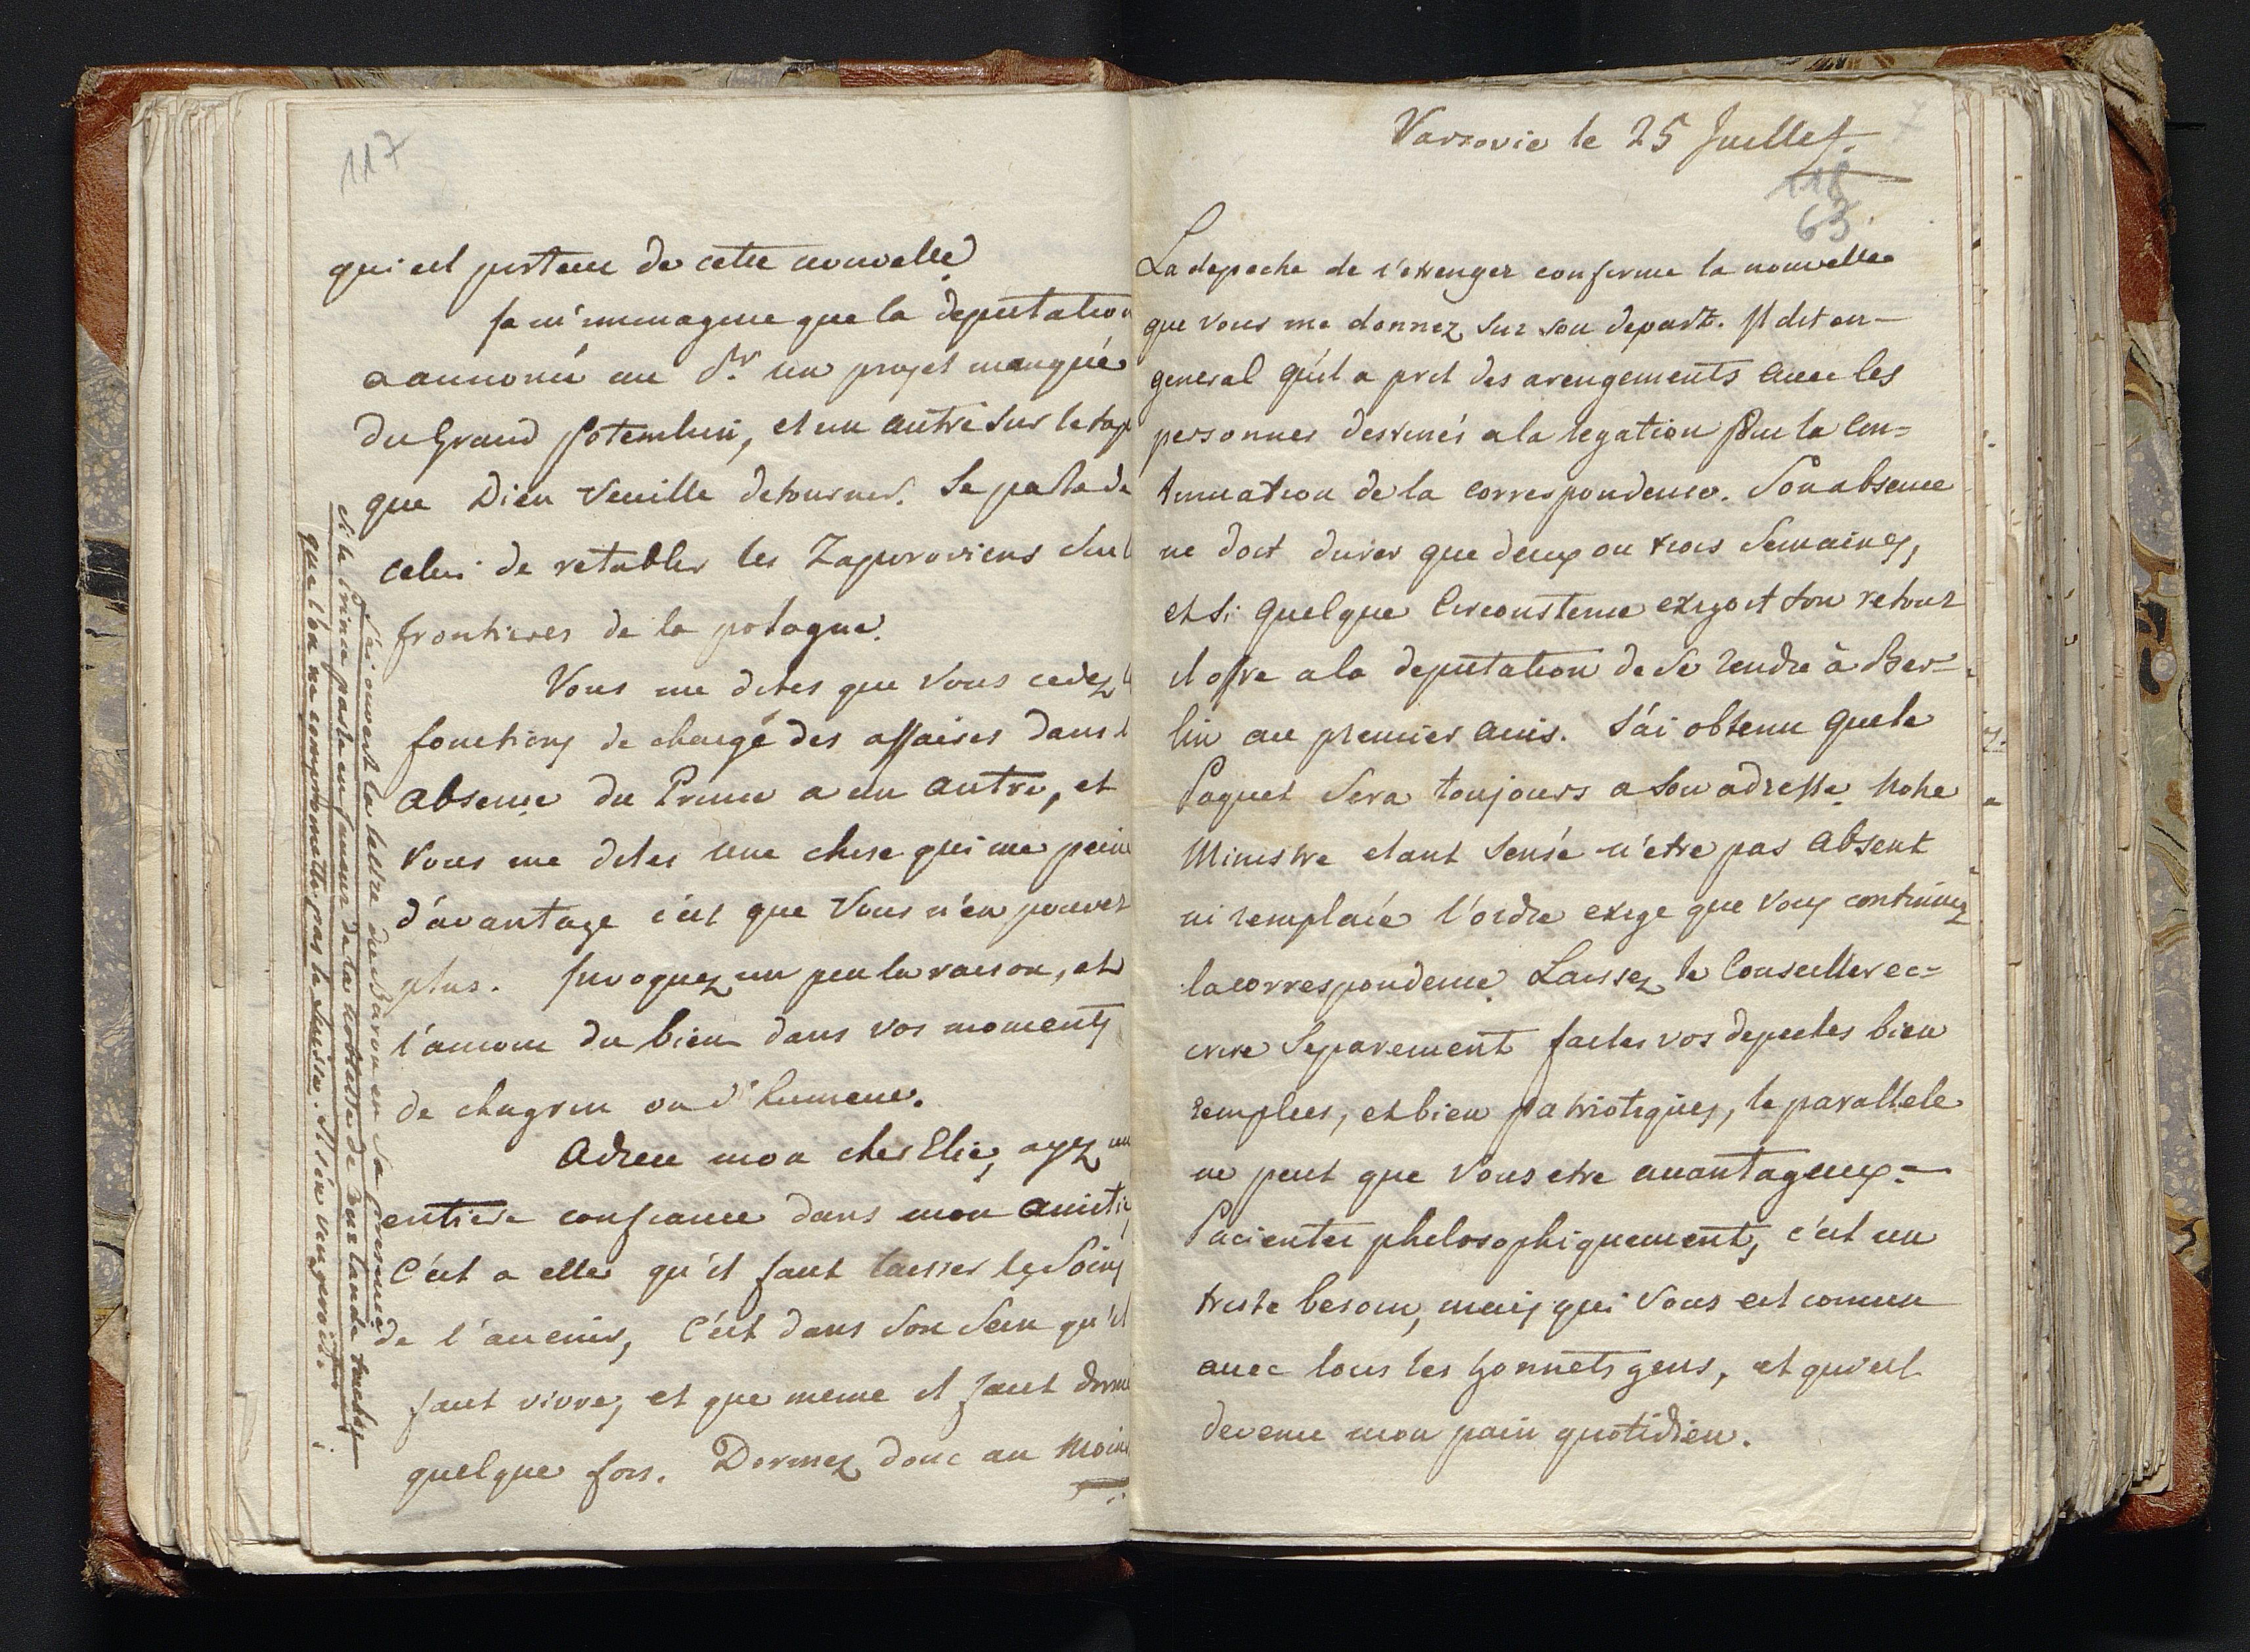 117
qui est porteur de cette nouvelle
Je m'immagine que la deputation
a annoncé au Sr. un projet manqué
du Grand Potemkin, et un autre sur le tap
que Dieu veuille detourner. Je parle de
celui de retablir les Zaporoviens sur l
frontieres de la pologne.
Vous me dites que vous cedez l
fonctions de chargé des affaires dans l
absence du Prince a un autre, et
vous me dites une chose qui me peine
d'avantage c'est que vous n'en pouvez
plus. Invoquez un peu la raison, et
l'amour du bien dans vos moments
de chagrin ou d'humeur.
Adieu mon cher Elie, ayez un
entiere confiance dans mon amitié
C'est a elle qu'il faut laisser les soins
de l'avenir, c'est dans son sein qu'il
faut vivre, et que meme il faut dormi
quelque fois. Dormez donc au moins
J'ai ouvert la lettre du Baron en sa presence
si le Prince parle en faveur de la noblesse de Courlande
que l'on ne compromette pas la Suisse. Il s'en vengeroit.
Varsovie le 25 Juillet.
7
118
63.
La depeche de l'etrenger conferme la nouvelle
que vous me donnez sur son depart. Il dit en-
general qu'il a prit des arengements avec les
personnes destinés a la legation pour la con=
tinuation de la correspondence. Son absence
ne doit durer que deux ou trois semaines,
et si quelque circonstence exigoit son retour
il ofre a la deputation de se rendre à Ber-
lin au premier avis. J'ai obtenu que le
Paquet sera toujours a son adresse. Notre
Ministre etant sensé n'etre pas absent
ni remplacé l'ordre exige que vous continuiez
la correspondence. Laissez le Conseiller ec=
crire separement faites vos depeches bien
remplies, et bien patriotiques, le parallele
ne peut que vous etre avantageux.=
Pacienter philosophiquement, c'est un
triste besoin, mais qui vous est comun
avec tous les honnets gens, et qui est
devenu mon pain quotidien.